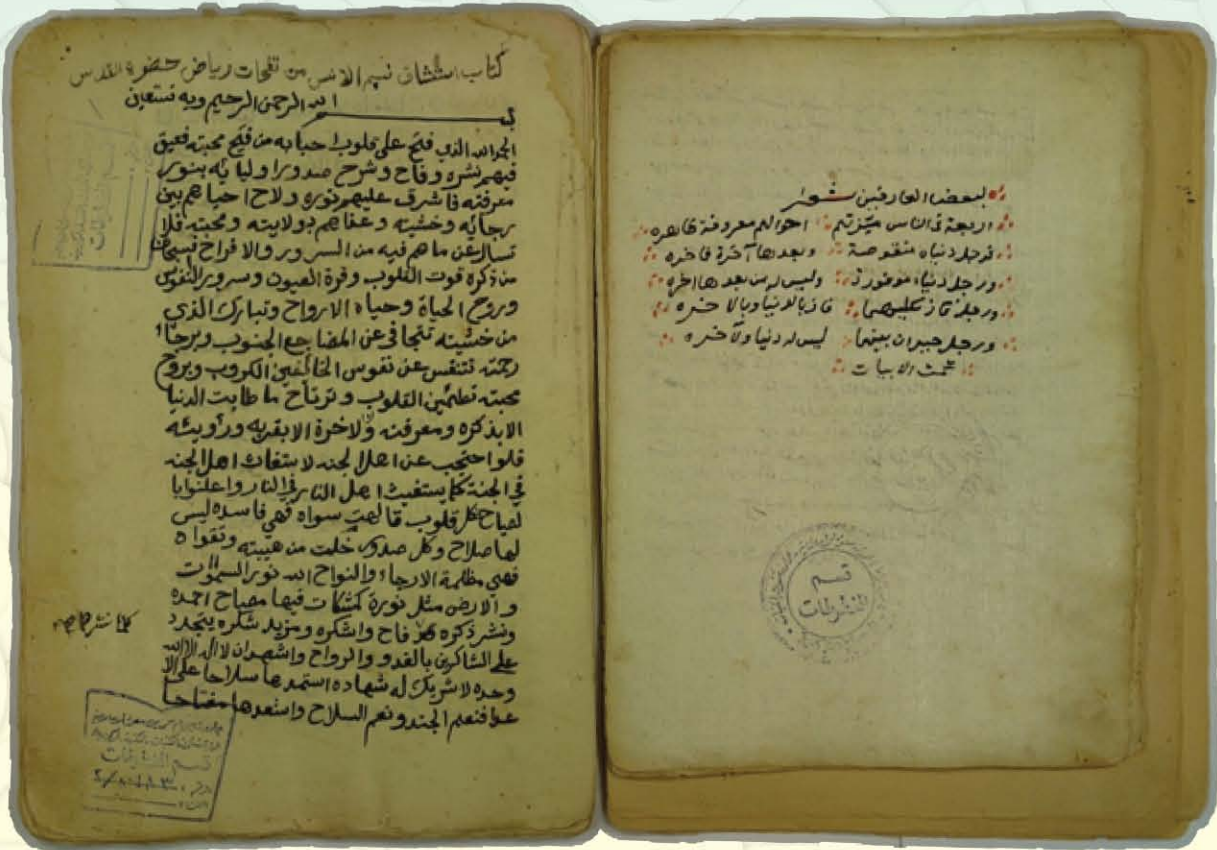 لبعض العارفين شعرا
اربعة في الناس ميزتهم احوالهم معروفة ظاهره
فرجل دنياه منقوصة وبعدها آخرة فاخره
ورجل دنياه موفورة وليس له من بعدها اخره
ورجل فاز بكليهما فاز بالدنيا وبالاخره
ورجل حيران بينهما ليس له دنيا ولا خره
تمت الابيات
قسم المخطوطات
كتاب استنشاق نسيم الانس من نفحات رياض حضرة القدس
بسم الله الرحمن الرحيم وبه نستعين
الحمد لله الذي فتح على قلوب احبابه من فتح محبته فعبق
فيهم نشره وفاح وشرح صدور اوليائه بنور
معرفته فاشرق عليهم نوره ولاح احياهم بين
رجائه وخشيته وغذاهم بولايته ومحبته فلا
تسال عن ما هم فيه من السرور والافراح فسبحان
من ذكره قوت القلوب وقرة العيون وسرور النفوس
وروح الحياة وحياه الارواح وتبارك الذي
من خشيته تتجافى عن المضاجع الجنوب وبرجاء
رحمته تتنفس عن نفوس الخائفين الكروب وبروح
محبته تطمئن القلوب وترتاح ما طابت الدنيا
الا بذكره ومعرفته ولا خرة الا بقربه ورؤيته
فلو احتجب عن اهل الجنه لاستغاث اهل الجنه
في الجنة كما يستغيث اهل النار في النار واعلنوا با
لصياح كل قلوب تالهت سواه فهي فاسده ليس
لها صلاح وكل صدور خلت من هيبته وتقواه
فهي مظلمة الارجاء والنواح الله نور السموات
والارض مثل نوره كمشكات فيها مصباح احمده
ونشر ذكره قد فاح واشكره ومزيد شكره يتجدد
على الشاكرين بالغدو والرواح واشهد ان لا اله الا الله
وحده لا شريك له شهاده استمدها سلاحا على الا
عدا فنعم الجند ونعم السلاح واستعدها مفتاحا
قسم المخطوطات